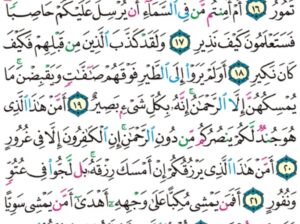 تَمُورُ ١٦ أَمْ أَمِنتُم مَّن فِى ٱلسَّمَآءِ أَن يُرْسِلَ عَلَيْكُمْ حَاصِبًا
فَسَتَعْلَمُونَ كَيْفَ نَذِيرِ ١٧ وَلَقَدْ كَذَّبَ ٱلَّذِينَ مِن قَبْلِهِمْ فَكَيْفَ
كَانَ نَكِيرِ ١٨ أَوَلَمْ يَرَوْا۟ إِلَى ٱلطَّيْرِ فَوْقَهُمْ صَٰٓفَّٰتٍ وَيَقْبِضْنَ مَا
يُمْسِكُهُنَّ إِلَّا ٱلرَّحْمَٰنُ إِنَّهُۥ بِكُلِّ شَىْءٍۭ بَصِيرٌ ١٩ أَمَّنْ هَٰذَا ٱلَّذِى
هُوَ جُندٌ لَّكُمْ يَنصُرُكُم مِّن دُونِ ٱلرَّحْمَٰنِ إِنِ ٱلْكَٰفِرُونَ إِلَّا فِى غُرُورٍ
٢٠ أَمَّنْ هَٰذَا ٱلَّذِى يَرْزُقُكُمْ إِنْ أَمْسَكَ رِزْقَهُۥ بَل لَّجُّوا۟ فِى عُتُوٍّ
وَنُفُورٍ ٢١ أَفَمَن يَمْشِى مُكِبًّا عَلَىٰ وَجْهِهِۦٓ أَهْدَىٰٓ أَمَّن يَمْشِى سَوِيًّا